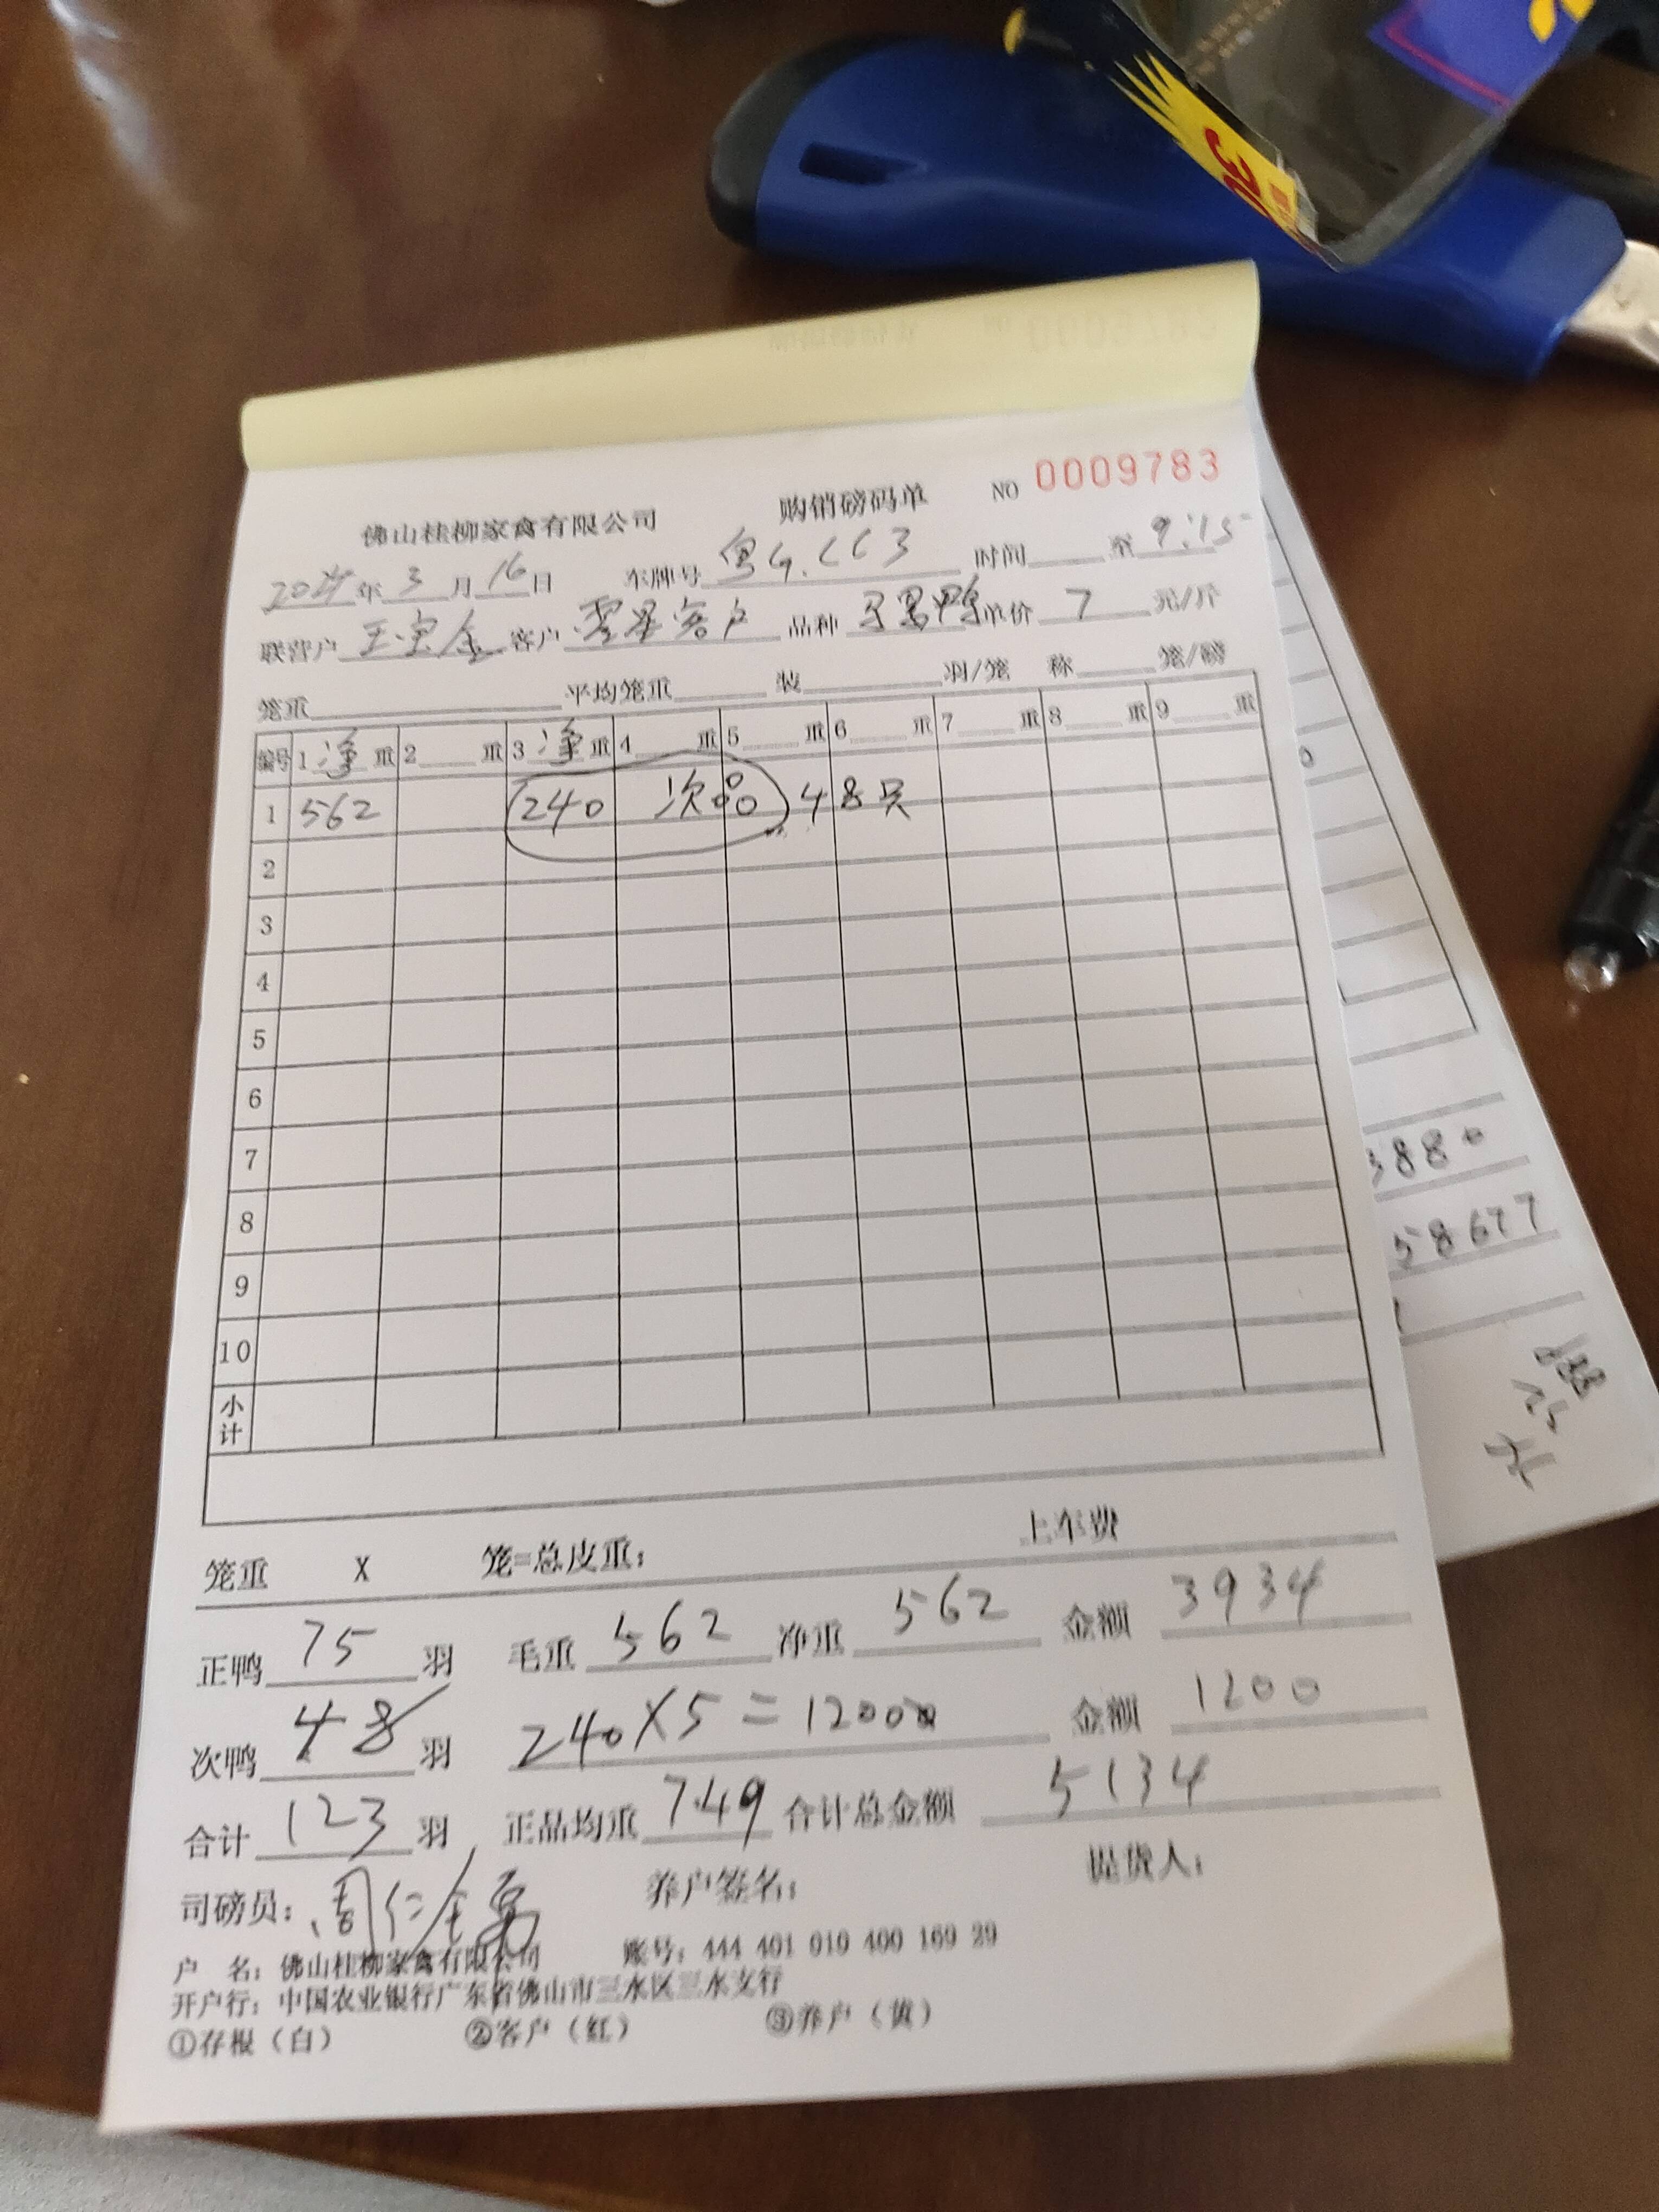 佛山桂柳家禽有限公司 购销磅码单 NO 0009783
年 3 月 16 日 车牌号 粤G.CC3 时间 至 9:15
联营户 王宝金 客户 零星客户 品种 单价 7 元/斤
笼重 平均笼重 装 羽/笼 称 笼/磅
编号 1 净 重 2 重 3 净 重 4 重 5 重 6 重 7 重 8 重 9 重
1 562 240 次品 48只
2
3
4
5
6
7
8
9
10
小计
笼重 X 笼=总皮重: 上车费
正鸭 75 羽 毛重 562 净重 562 金额 3934
次鸭 48 羽 240×5=1200 金额 1200
合计 123 羽 正品均重 7.49 合计总金额 5134
司磅员: 周仁 养户签名: 提货人:
户 名: 佛山桂柳家禽有限公司 账号: 444 401 010 400 169 29
开户行: 中国农业银行广东省佛山市三水区三水支行
①存根（白） ②客户（红） ③养户（黄）
3880
58677